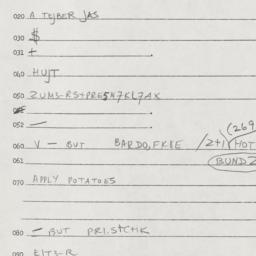 020 A TEJBER JAS
030 $
031 +
040 HUJT
050 ZUMS-RS+PRE5N7KL7AX
052 —
(269
060 V — BUT BARDO, FKIE /2+1 (HOT
061 BUNDZ
070 APPLY POTATOES
080 — BUT PRI.STCHK
090 EITER